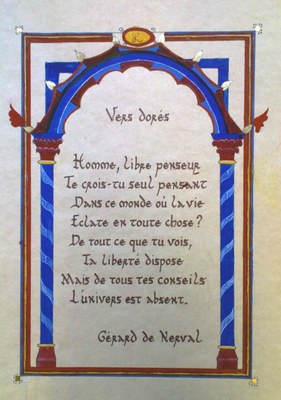 Vers dorés
Homme, libre penseur
Te crois-tu seul pensant
Dans ce monde où la vie
Eclate en toute chose ?
De tout ce que tu vois,
Ta liberté dispose
Mais de tous tes conseils
L'univers est absent.
Gérard de Nerval